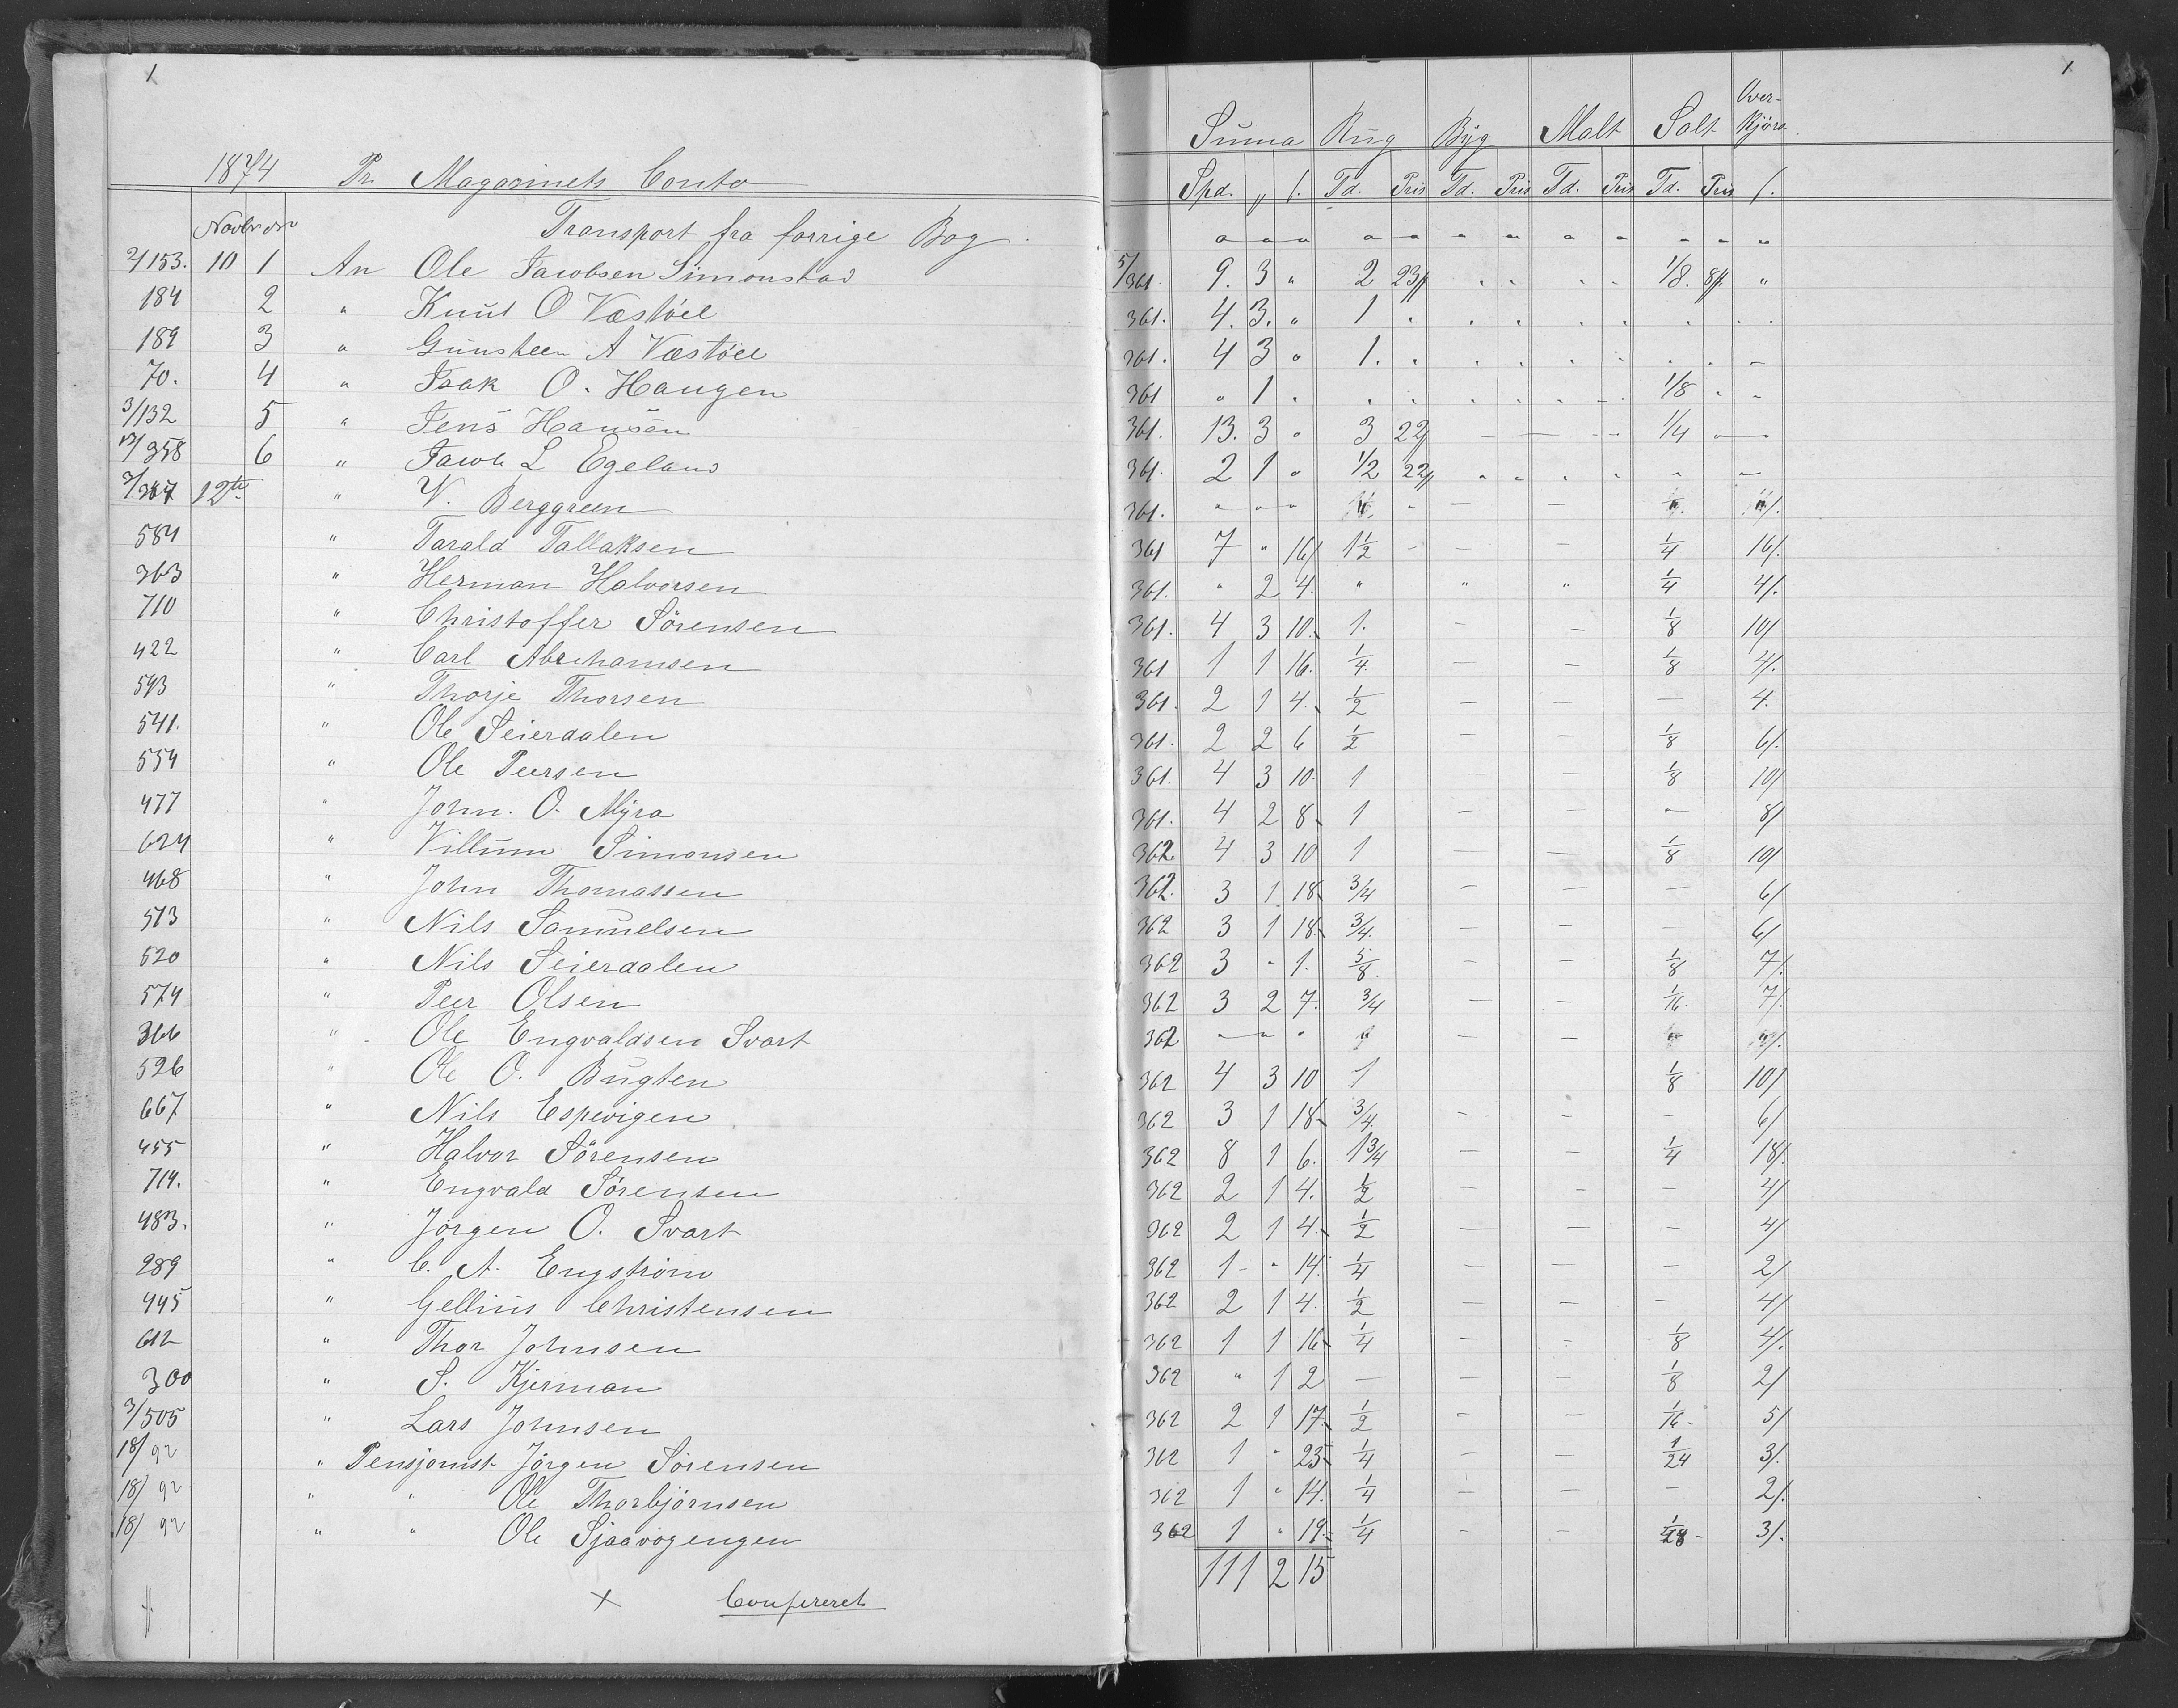 1
1
1874 Pr. Magazinets Conto
Over-
Suma Rug Byg Malt Salt Kjørs.
Novbr
Spd. „ ſ. Td. Pris Td. Pris Td. Pris Td. Pris ſ.
Transport fra forrige Bog.
2/153. 10 1 An Ole Jacobsen Simonstad 5/361 9. 3 „ 2 23 1/8. 8 „
184 2 „ Knut O Væstöel 361. 4. 3. „ 1
189 3 „ Gunsteen A Væstöel 361. 4 3 „ 1.
70. 4 „ Isak O. Haugen 361 „ 1 . 1/8
3/132 5 „ Jens Hansen 361. 13. 3 „ 3 22 – – – 1/4
358 6 „ Jacob L Egeland 361. 2 1 „ 1/2 22
12te „ V. Berggreen 361. „ „ „
584 „ Tarald Tallaksen 361 7 „ 16 1 1/2 – – – 1/4 16/.
363 „ Herman Halvorsen 361. „ 2 4. „ „ „ 1/4 4/.
710 „ Christoffer Sörensen 361. 4 3 10. 1. – – 1/8 10/
422 „ Carl Abrehamsen 361 1 1 16. 1/4 – – 1/8 4/.
593 „ Thorje Thorsen 361. 2 1 4. 1/2 – – – 4.
541. „ Ole Seierdalen 361. 2 2 6 1/2 – – 1/8 6/.
554 „ Ole Peersen 361. 4 3 10. 1 – – 1/8 10/
477 „ John. O. Myra 361. 4 2 8. 1 – – – 8/
624 „ Villum Simonsen 362 4 3 10 1 – – 1/8 10/
468 „ John Thomassen 362. 3 1 18. 3/4 – – – 6/
513 „ Nils Samuelsen 362 3 1 18. 3/4. – – – 6/
520 „ Nils Seierdalen 362 3 „ 1. 5/8. – – 1/8 7/.
574 „ Peer Olsen 362 3 2 7. 3/4 – – 1/16. 7/.
366 „ Ole Engvaldsen Svart 362 – „ „ – –
526 „ Ole O. Bugten 362 4 3 10 1 1/8 10/
667 „ Nils Espevigen 362 3 1 18. 3/4. – – – 6/
455 „ Halvor Sörensen 362 8 1 6. 1 3/4 – – 1/4 18/.
714. „ Engvald Sörensen 362 2 1 4. 1/2 – – – 4/
483. „ Jörgen O. Svart 362 2 1 4. 1/2 – – – 4/
289 „ C. A. Engström 362 1 – „ 14. 1/4 – – – 2/
445 „ Gellius Christensen 362 2 1 4. 1/2 – – – 4/
612 „ Thor Johnsen 362 1 1 16. 1/4 – – 1/8 4/.
300 „ S. Kjerman 362 „ 1 2 – – – 1/8 2/
3/505 „ Lars Johnsen 362 2 1 17. 1/2 – – 1/16. 5/
18/92 „ Pensjonist Jörgen Sörensen 362 1 „ 23. 1/4 – – 1/24 3/.
18/92 „ „ Ole Thorbjörnsen 362 1 „ 14. 1/4 – – – 2/.
18/92 „ „ Ole Sjaavogengen 362 1 „ 19. 1/4 – – 1/48 3/.
111 2 15
× Confereret